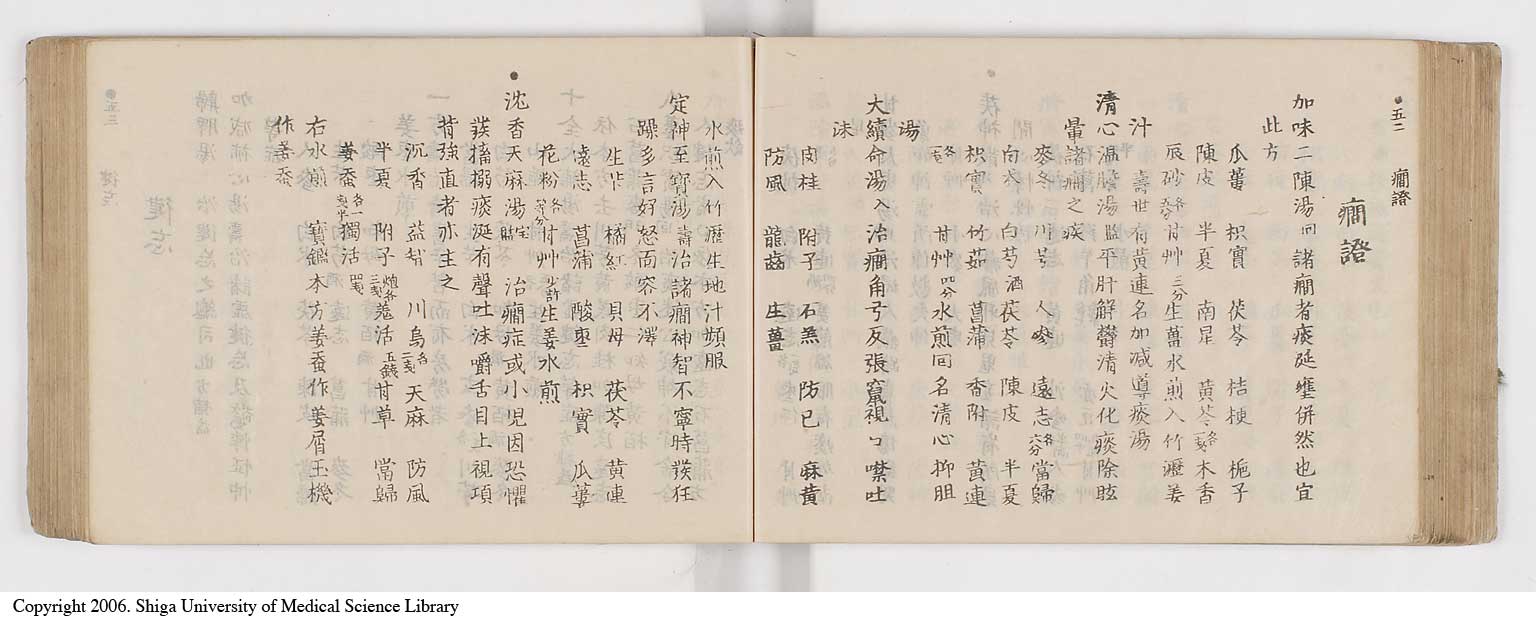 五二 癎證
癎證
加味二陳湯回諸癎者痰延壅併然也宜
此方
瓜蔞 枳實 茯苓 桔梗 梔子
陳皮 半夏 南星 黄芩 木香
辰砂 甘艸三分生薑水煎入竹瀝姜
汁 壽世有黄連名加减導痰湯
清心温膽湯 平肝解欝清火化痰除眩
暈諸癎之疾
麥冬 川芎 人參 遠志各六分當歸
白朮 白芍酒茯苓 陳皮 半夏
枳實 竹茹 菖蒲 香附 黄連
甘艸四分水煎回名清心抑胆
湯
大續命湯入治癎角弓反張竄視口噤吐
沫
肉桂 附子 石羔 防已 麻黄
防風 龍齒 生薑
水煎入竹瀝生地汁頻服
定神至寶湯壽治諸癎神智不寧時發狂
躁多言好怒面容不澤
生芐 橘紅 貝母 茯苓 黄連
遠志 菖蒲 酸枣 枳實 瓜蔞
花粉各等分甘艸少許生姜水煎
沈香天麻湯 治癎症或小児因恐懼
發搐搦痰涎有聲吐沫嚼舌目上視項
背強直者亦主之
沉香 益智 川烏各二戔天麻 防風
半夏 附子炮各三戔羗活五錢甘草 當歸
姜蚕各一戔半獨活四戔
右水煎 寳鑑本方姜蚕作姜屑玉機
作姜蚕
五三
Copyright 2006. Shiga University of Medical Science Library